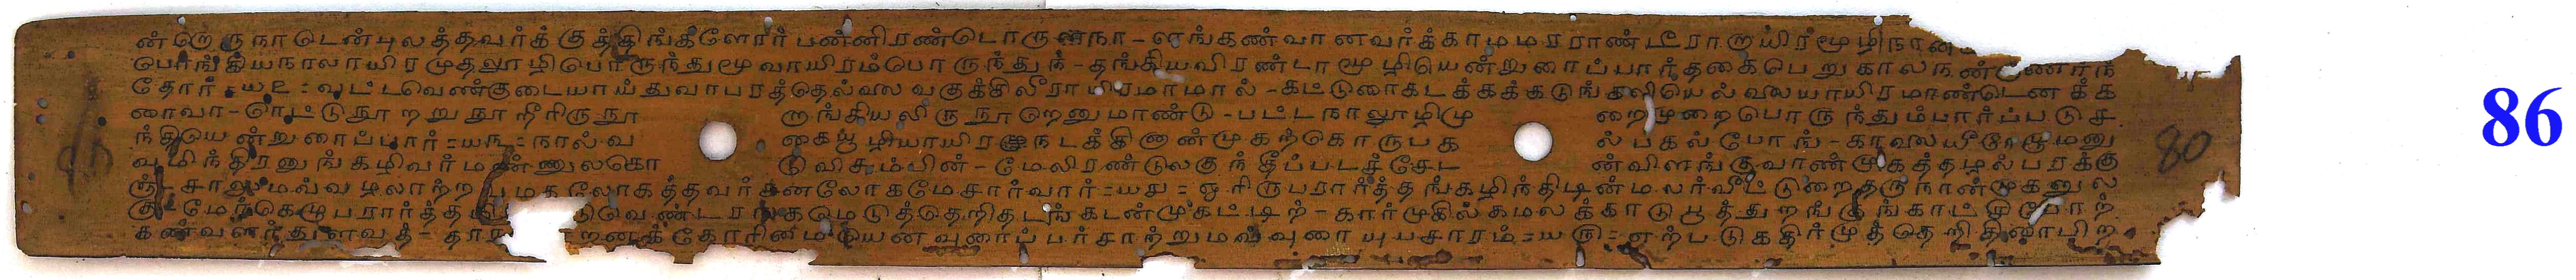 ன் றெருநாடென்புலத்தவர்க்குத்திங்களோரர் பன்னிரண்டொரு நா - ளங்கண்வானவர்க்காமமரராண்டீராறாயிர்மூழிநான
பொங்கியநாலாயிரமுதலூழிபொருந்துமூவாயிரம்பொருந்துந் - தங்கியவிரண்டாமூழியென்றுரைப்பார்தகைபெறுகாலந
தோர் = ய௨ = வட்டவெண்குடையாய்துவாபரத்தெல்லை வகுக்கிலீராயிரமாமால் - கட்டுரைகடக்கக்கடுங்கலியெல்லையாயிரமாண்டெனக்க
ரைவா - ரெட்டுநூறறுநூறீரிருநூ றங்கியலிருநூறெனுமாண்டு - பட்டநாலூழிமு றைமுறைபொருந்தும்பார்ப்படுச
ந்தியென்றுரைப்பார் = ய௩ = நால்வ கையூழியாயிரநடக்கினான்முகற்கொருபக ல் பகல்போங் - காலையீரேழுமனு
வுமிந்திரனுங்கழிவர்மண்ணுலகொ டுவிசும்பின் - மேலிரண்டுலகுந்தீப்படச்சேட ன்விளங்குவாண்முகத்தழல்பரக்கு
சாலுமவ்வழலாற்ற மகலோகத்தவர் சனலோகமேசார்வார் = ய௪ = ஓரிருபரார்த்தங்கழிந்திடின்மலர்வீட்டுறைதருநான்முகனுல
மேற்கெழுபரார்த்த வெண்டரங்கமெடுத்தெறிதடங்கடன்முகட்டிற் - கார்முகில்கமலக்காடுபூத்துறங்குங்காட்சிபோற்
கண்வளர்ந்துளவத் - தார றனக்கோரினமெயெனவுரைப்பர்சாற்றுமவ்வுரையுயசாரம் = ய௫ = ஏற்படுகதிர்முத்தெறிதிரைாயிற
80
86